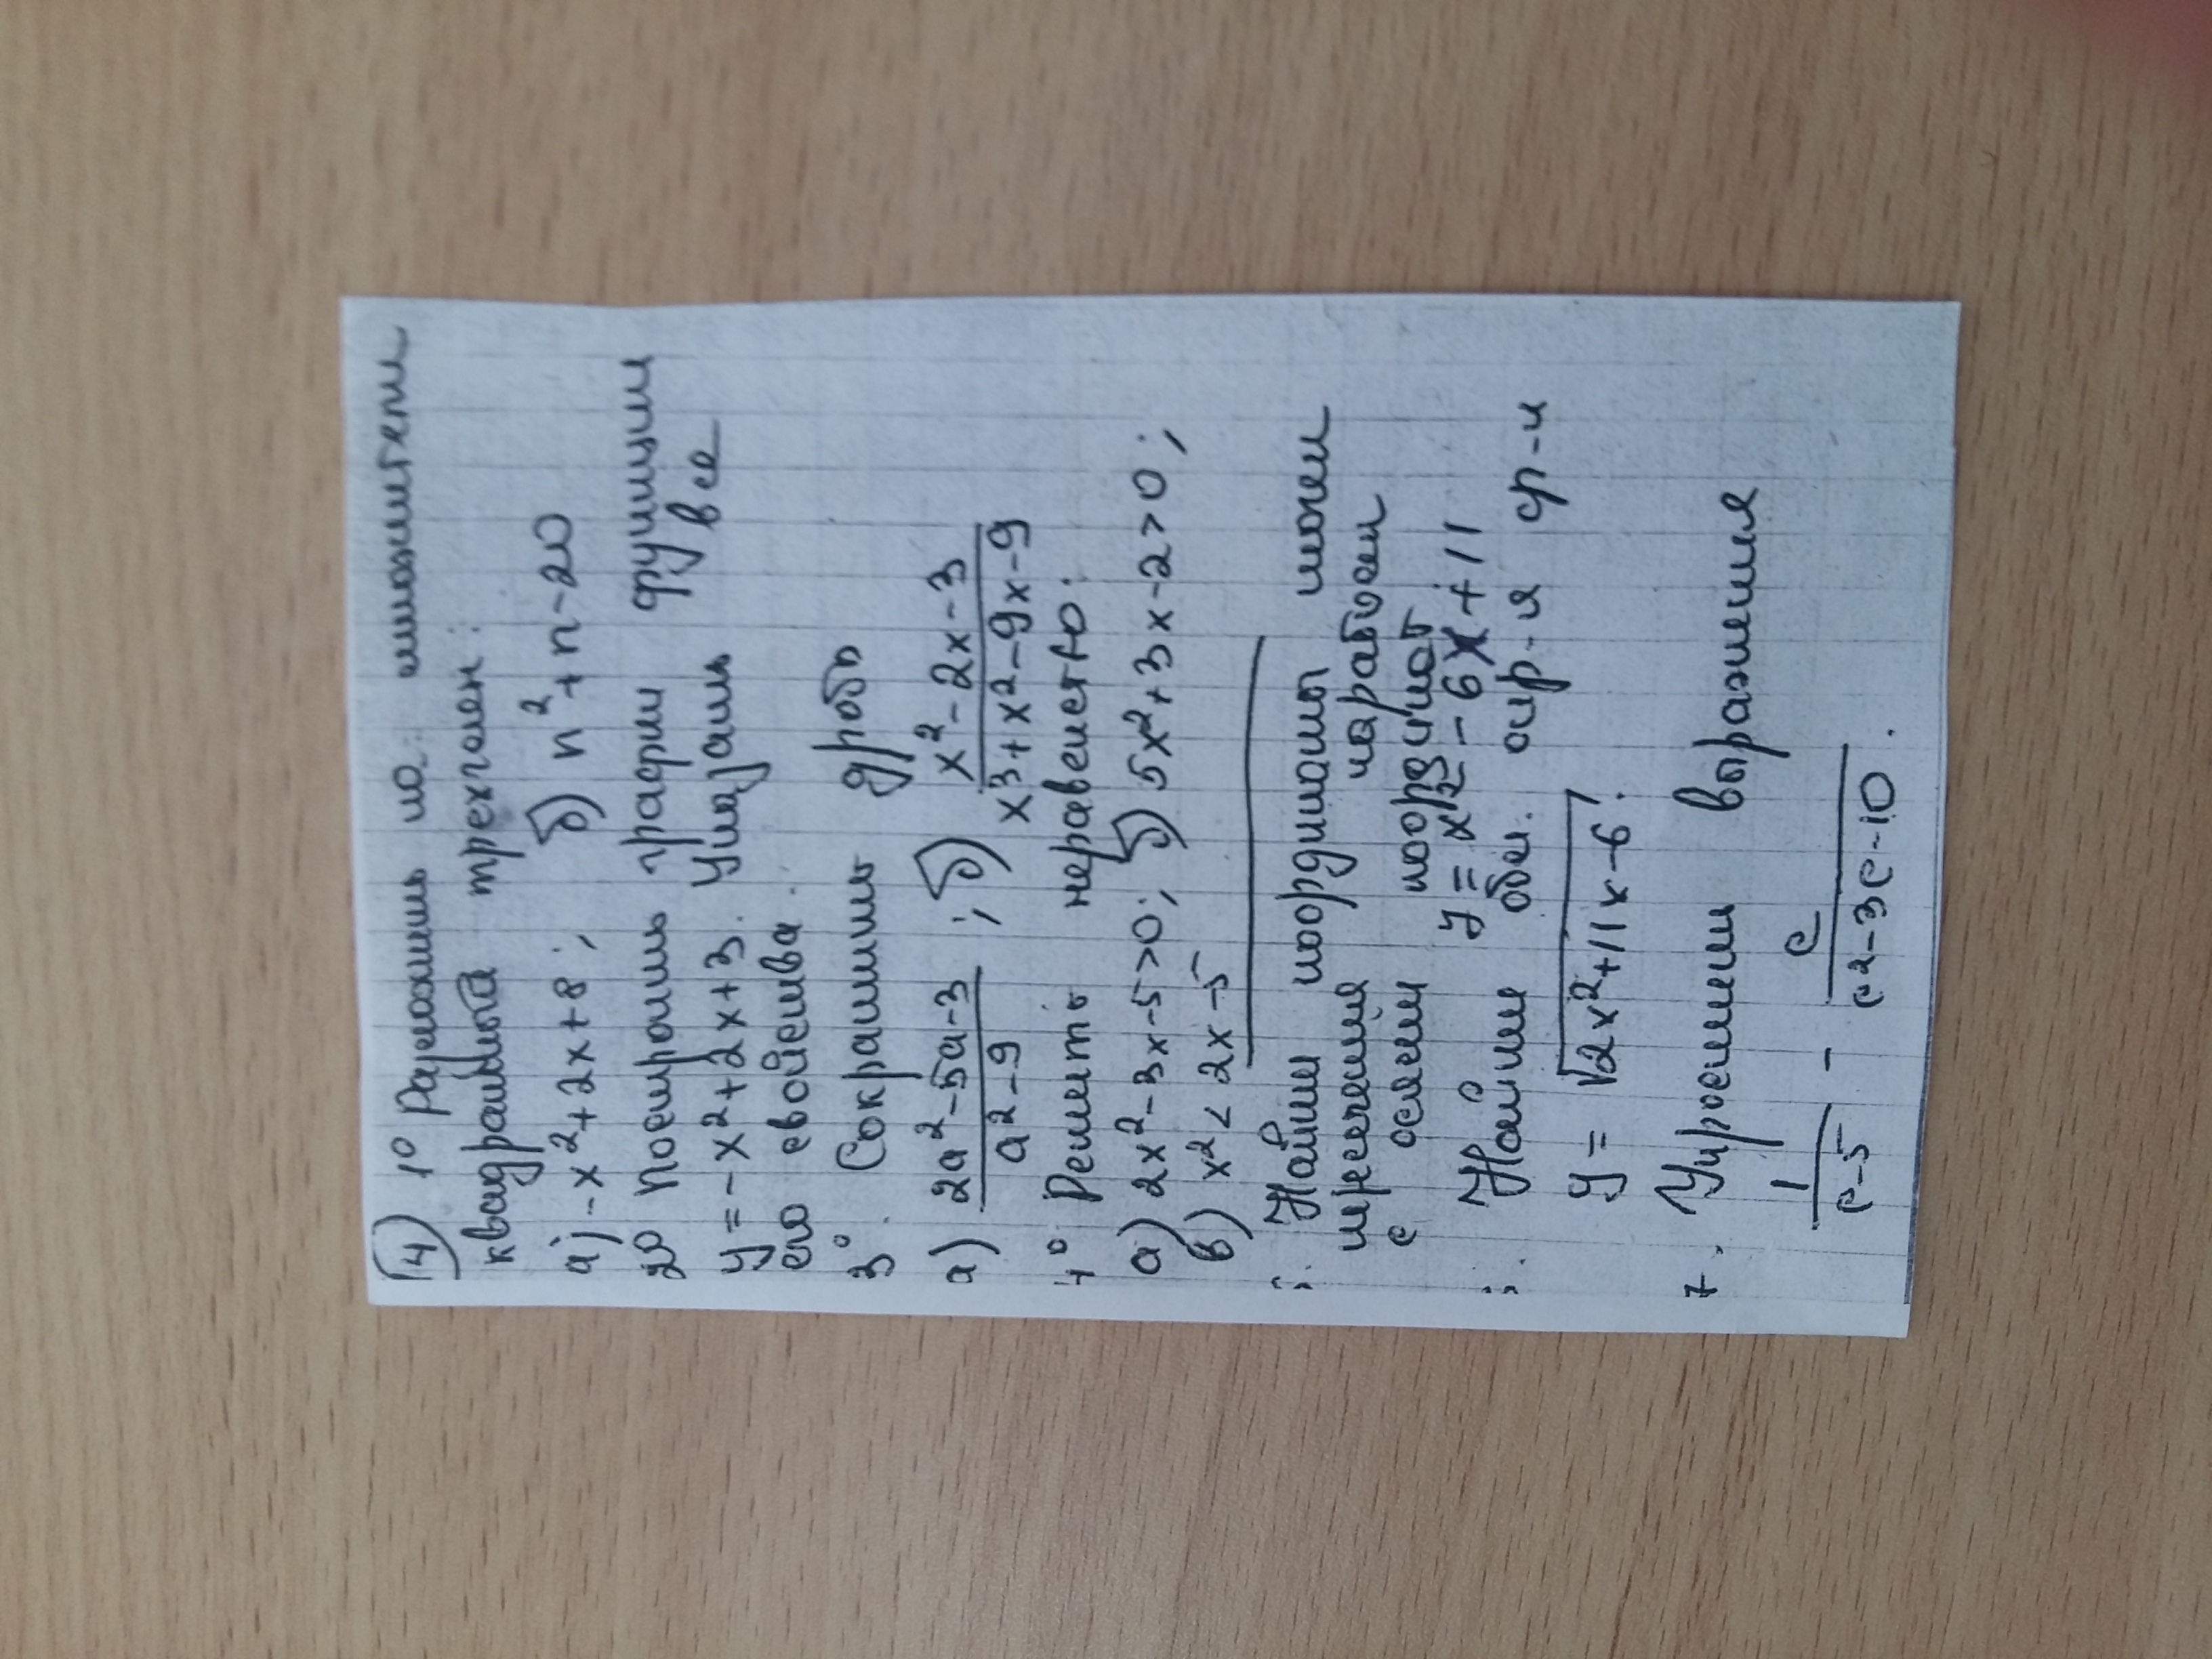 14) 1° Разложить на множители
квадратный трехчлен:
а) -x²+2x+8; б) n²+n-20
2° Построить график функции
y=-x²+2x+3. Указать все
его свойства.
3°. Сократить дробь
а) (2a²-5a-3)/(a²-9); б) (x²-2x-3)/(x³+x²-9x-9)
4° Решить неравенство:
а) 2x²-3x-5>0; б) 5x²+3x-2>0;
в) x²<2x-5
Найти координаты точек
пересечения параболы
с осями координат
y=x²-6x+11
Найти обл. опр-я ф-и
y=√(2x²+11x-6).
7. Упростить выражения
1/(c-5) - c/(c²-3c-10).